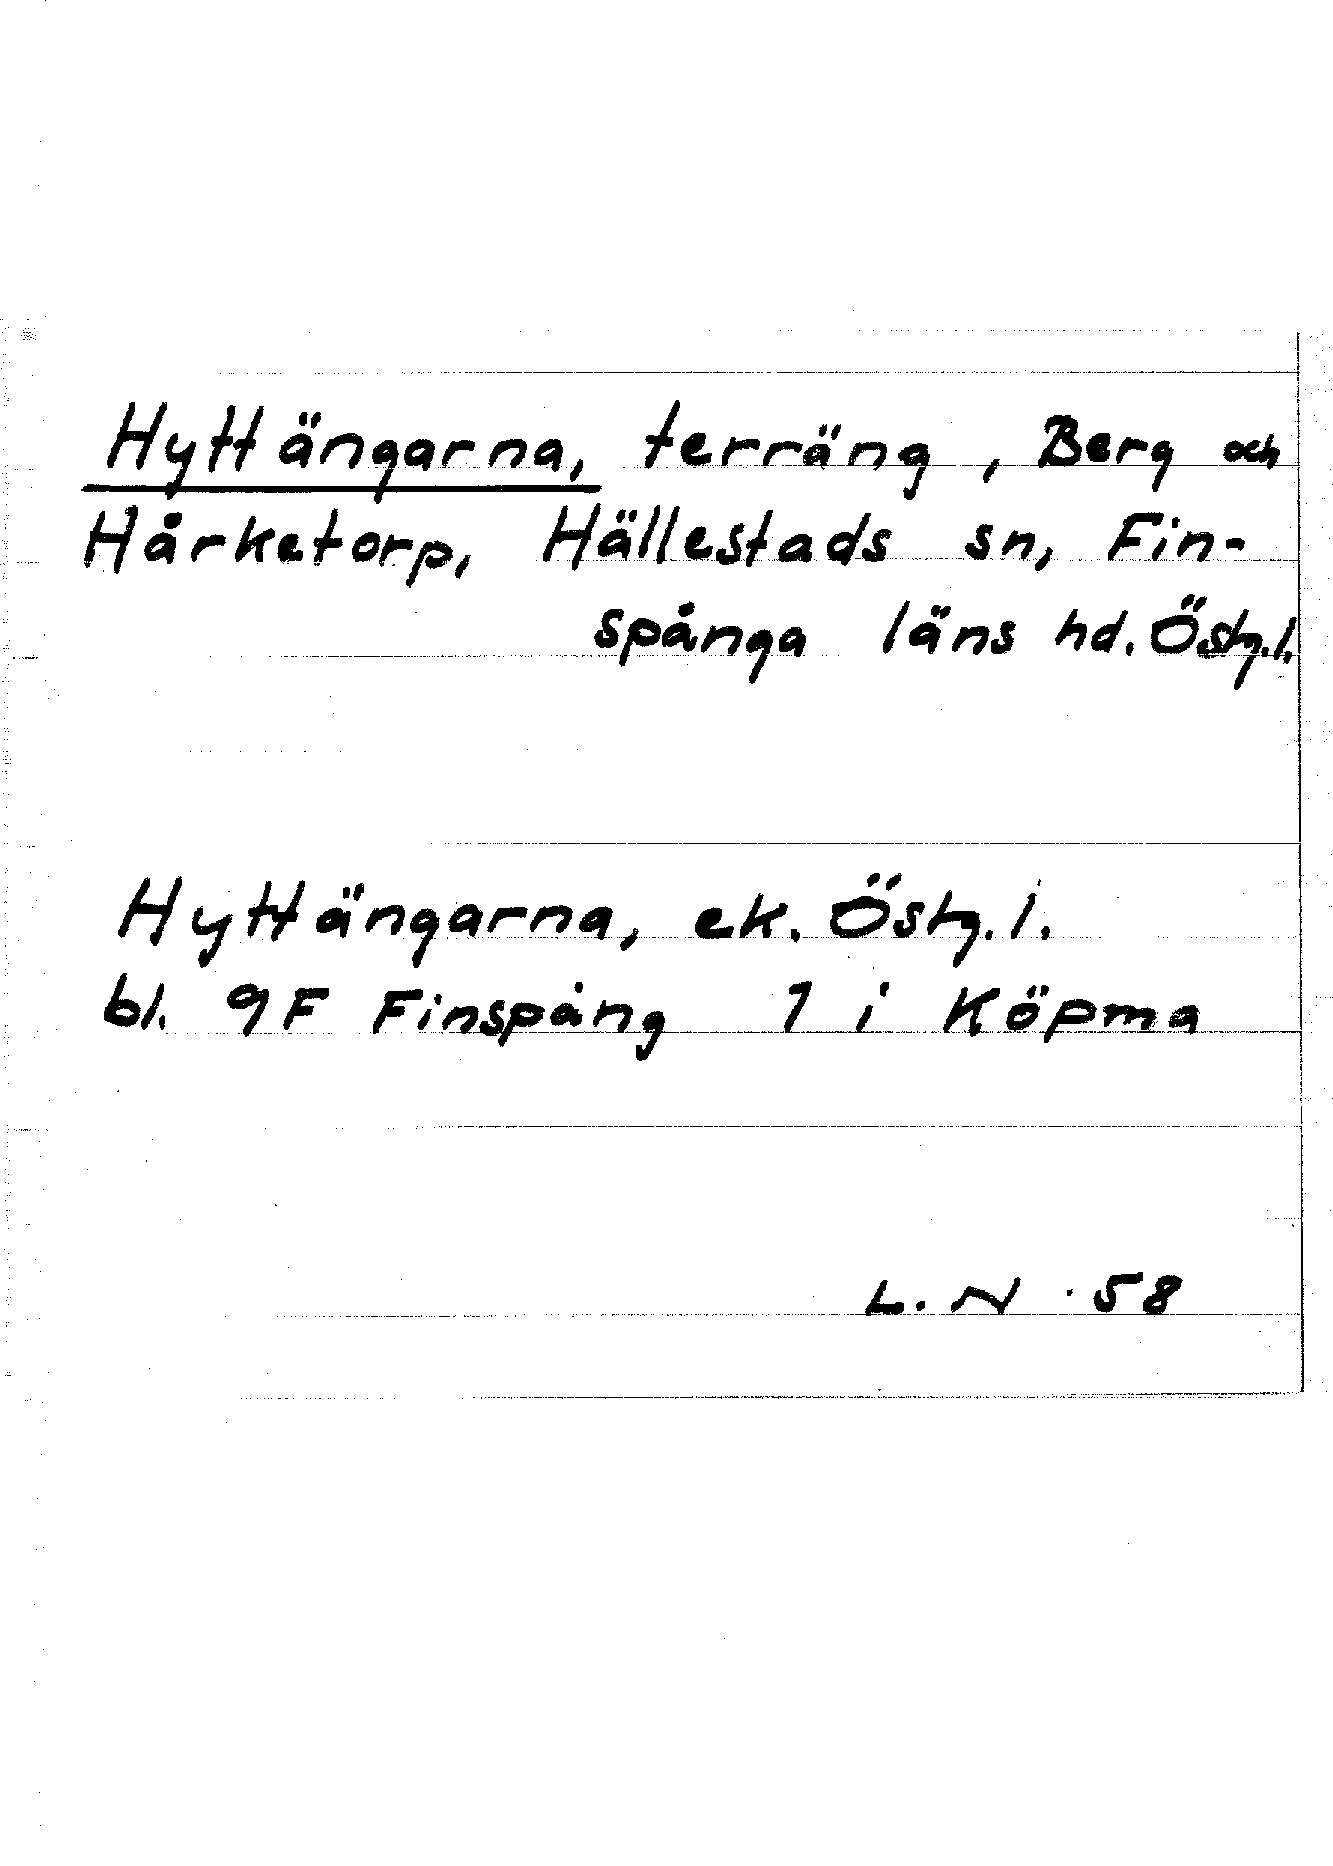 Hyttängarna, terräng, Berg och
Hårketorp, Hällestads sn, Fin-
spånga läns hd. Östg.l.
Hyttängarna, ek. Östg.l.
bl. 9F Finspång 1 i Köpma
L. N. 58